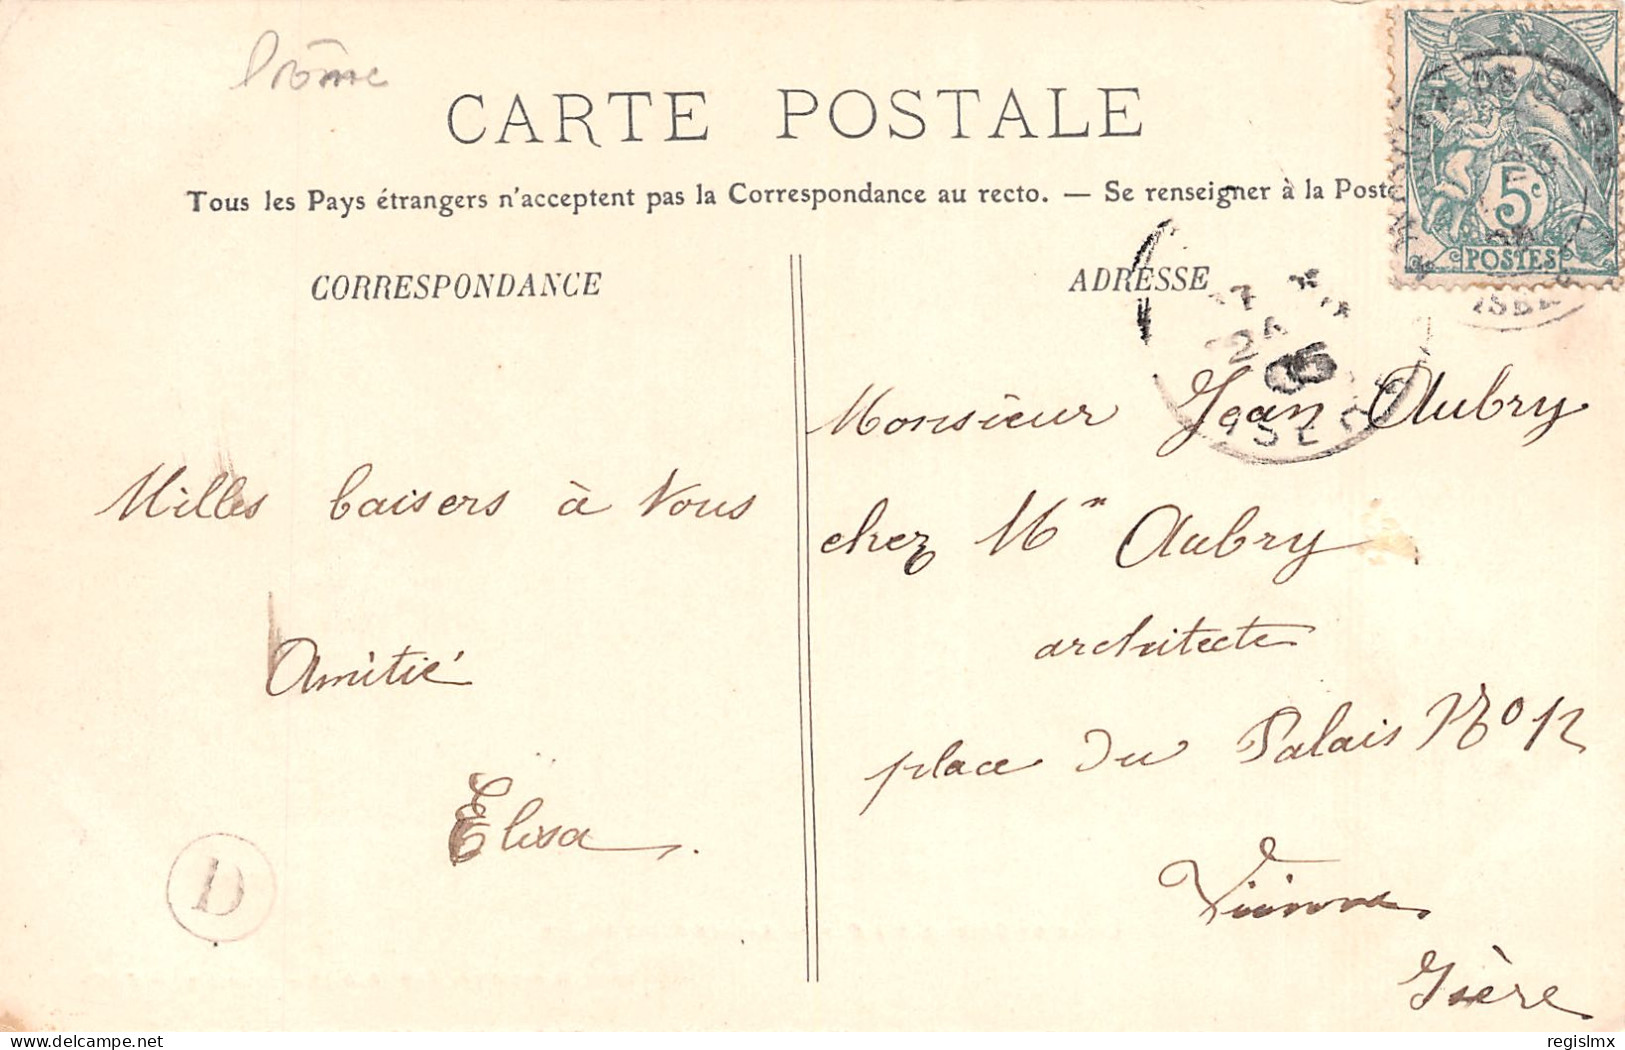 Drôme
CARTE POSTALE
Tous les Pays étrangers n'acceptent pas la Correspondance au recto. — Se renseigner à la Poste
CORRESPONDANCE
ADRESSE
5c
POSTES
ISÈRE
05
ISÈRE
Milles baisers à Vous
Amitié
Elisa.
D
Monsieur Jean Aubry
chez Mr Aubry
architecte
place du Palais No 12
Vienne
Isère
delcampe.net
regislmx